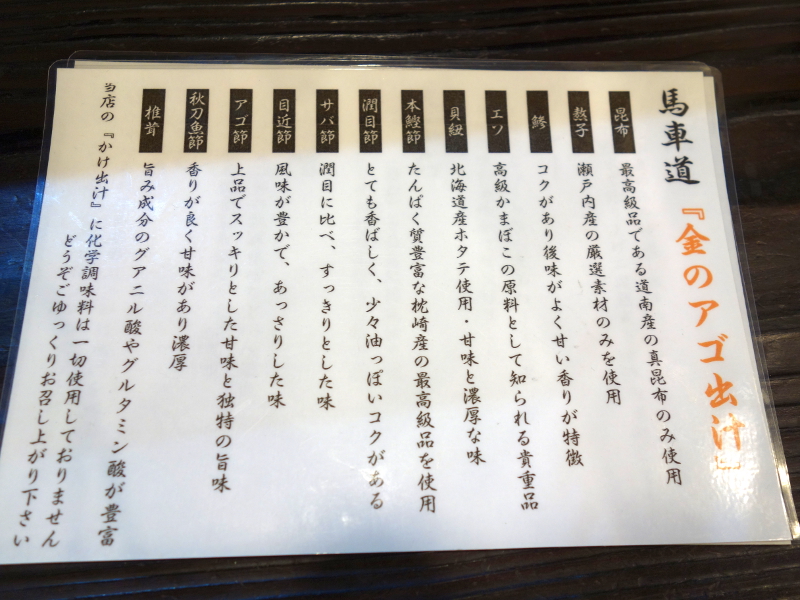 馬車道『金のアゴ出汁』
昆布 最高級品である道南産の真昆布のみ使用
熬子 瀬戸内産の厳選素材のみを使用
鯵 コクがあり後味がよく甘い香りが特徴
エソ 高級かまぼこの原料として知られる貴重品
貝紐 北海道産ホタテ使用・甘味と濃厚な味
本鰹節 たんぱく質豊富な枕崎産の最高級品を使用
潤目節 とても香ばしく、少々油っぽいコクがある
サバ節 潤目に比べ、すっきりとした味
目近節 風味が豊かで、あっさりした味
アゴ節 上品でスッキリとした甘味と独特の旨味
秋刀魚節 香りが良く甘味があり濃厚
椎茸 旨み成分のグアニル酸やグルタミン酸が豊富
当店の『かけ出汁』に化学調味料は一切使用しておりません
どうぞごゆっくりお召し上がり下さい